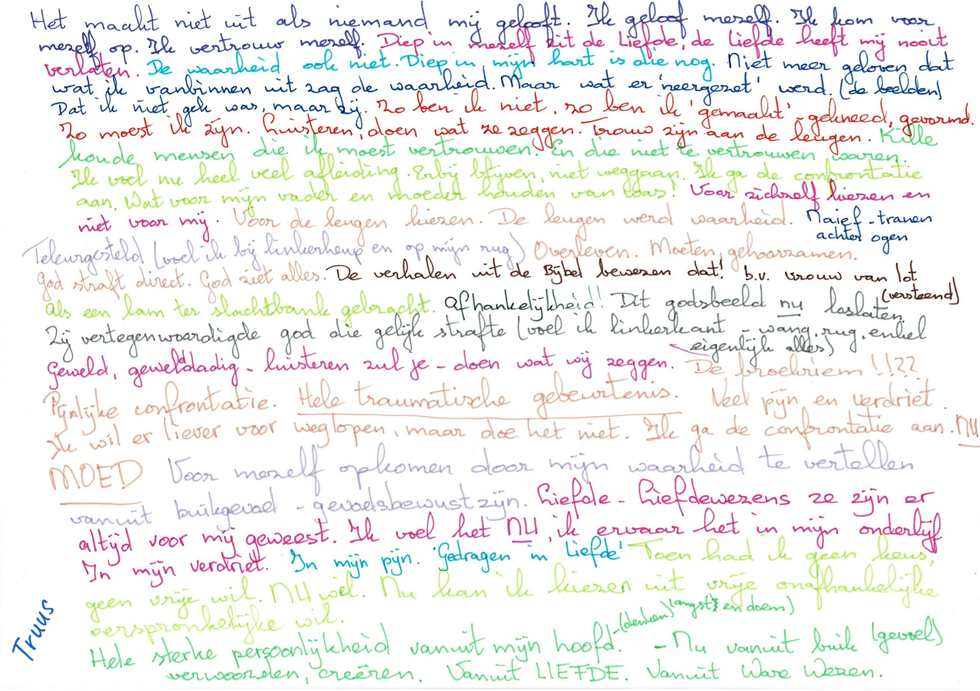 Het maakt niet uit als niemand mij gelooft. Ik geloof mezelf. Ik kom voor
mezelf op. Ik vertrouw mezelf. Diep in mezelf zit de Liefde, de Liefde heeft mij nooit
verlaten. De waarheid ook niet. Diep in mijn hart is die nog. Niet meer geloven dat
wat ik vanbinnen uit zag de waarheid. Maar wat er 'neergezet' werd. (de beelden)
Dat ik niet gek was, maar zij. Zo ben ik niet, zo ben ik 'gemaakt' - gekneed, gevormd.
Zo moest ik zijn. Luisteren, doen wat ze zeggen. Trouw zijn aan de leugen. Kille
koude mensen die ik moest vertrouwen. En die niet te vertrouwen waren.
Ik voel nu heel veel afleiding. Erbij blijven, niet weggaan. Ik ga de confrontatie
aan. Wat voor mijn vader en moeder houden van was! Voor zichzelf kiezen en
niet voor mij. Voor de leugen kiezen. De leugen werd waarheid. Naief - tranen
achter ogen
Teleurgesteld (voel ik bij linkerheup en op mijn rug) Overleven. Moeten gehoorzamen.
God straft direct. God ziet alles. De verhalen uit de Bijbel bewezen dat! b.v. vrouw van Lot
(versteend)
Als een lam ter slachtbank gebracht. Afhankelijkheid!! Dit godsbeeld nu loslaten
Zij vertegenwoordigde god die gelijk strafte (voel ik linkerkant - wang, rug, enkel
eigenlijk alles)
Geweld, gewelddadig - luisteren zul je - doen wat wij zeggen. De broekriem!!??
Pijnlijke confrontatie. Hele traumatische gebeurtenis. Veel pijn en verdriet.
Ik wil er liever voor weglopen, maar doe het niet. Ik ga de confrontatie aan. NU
MOED Voor mezelf opkomen door mijn waarheid te vertellen
vanuit buikgevoel - gevoelsbewustzijn. Liefde - Liefdewezens ze zijn er
altijd voor mij geweest. Ik voel het NU, ik ervaar het in mijn onderlijf
In mijn verdriet. In mijn pijn. 'Gedragen in Liefde' Toen had ik geen keus,
geen vrije wil. NU wel. Nu kan ik kiezen uit vrije onafhankelijke
oerspronkelijke wil.
(denken) (angst) en doem)
Hele sterke persoonlijkheid vanuit mijn hoofd - - Nu vanuit buik (gevoel)
verwoorden, creëren. Vanuit LIEFDE. Vanuit Ware Wezen.
Truus